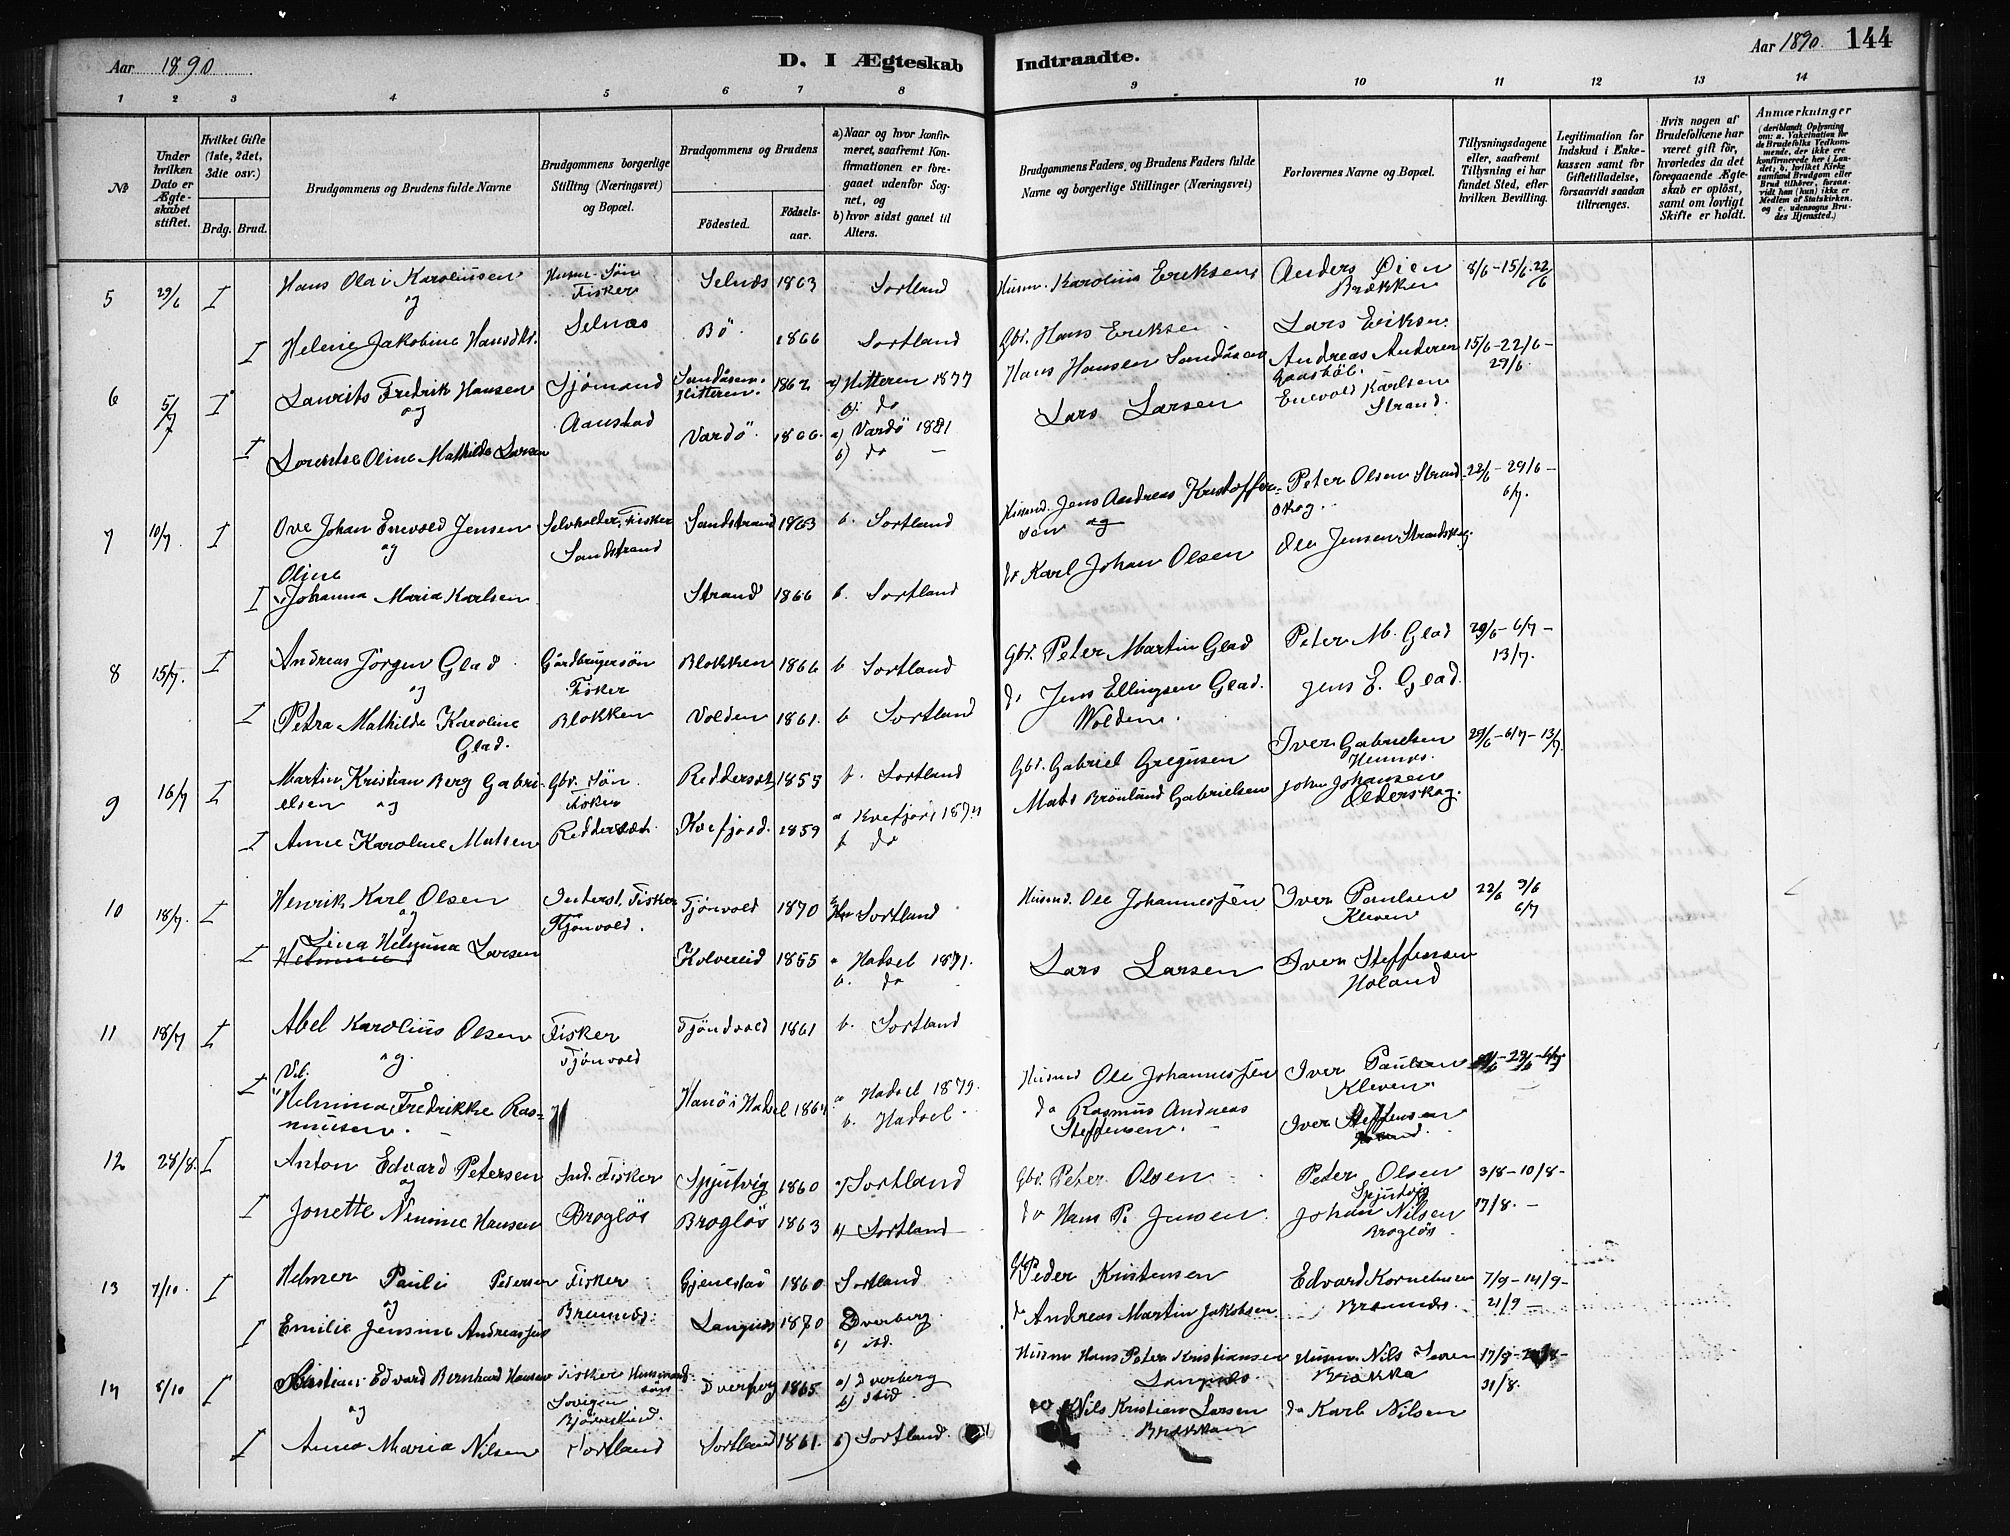 Aar 1890
D. I Ægteskab Indtraadte.
Aar 1890. 144
1 2 3 4 5 6 7 8 9 10 11 12 13 14
No
Under hvilken Dato er Ægteskabet stiftet.
Hvilket Gifte (1ste, 2det, 3die osv.)
Brdg. Brud.
Brudgommens og Brudens fulde Navne
Brudgommens borgerlige Stilling (Næringsvei) og Bopæl.
Brudgommens og Brudens
Födested.
Födselsaar.
a) Naar og hvor konfirmeret, saafremt Konfirmationen er foregaaet udenfor Sognet, og
b) hvor sidst gaaet til Alters.
Brudgommens Faders, og Brudens Faders fulde Navne og borgerlige Stillinger (Næringsvei)
Forlovernes Navne og Bopæl.
Tillysningsdagene eller, saafremt Tillysning ei har fundet Sted, efter hvilken Bevilling.
Legitimation for Indskud i Enkekassen samt for Giftetilladelse, forsaavidt saadan tiltrænges.
Hvis nogen af Brudefolkene har været gift för, hvorledes da det foregaaende Ægteskab er oplöst, samt om lovligt Skifte er holdt.
Anmærkninger
(deriblandt Oplysning om: a. Vakcination for de Brudefolks Vedkommende, der ikke ere konfirmerede her i Landet; b. hvilket Kirkesamfund Brudgom eller Brud tilhörer, forsaavidt han (hun) ikke er Medlem af Statskirken, og c. udensogns Brudes Hjemsted.)
5 29/6 I Hans Olai Karoliussen Husm. Sön Selnæs 1863 Sortland Husm. Karolius Eriksen Anders Öien 8/6 - 15/6 22/6
og Fisker Brækken
Selnæs
I Helene Jakobine Hansdtr. Bö 1866 Sortland Gbr. Hans Eriksen Lars Eriksen
6 5/7 I Laurits Fredrik Hansen Sjömand Sandåsen Hitteren. 1862 a) Hitteren 1877 Hans Hansen Sandåsen Andreas Andersen 15/6 - 22/6 - 29/6
og Aanstad b. do
I Lorentse Oline Mathilde Larsen Vardö 1866. a) Vardö 1881 Lars Larsen Enevold Karlsen Strand.
b) do
7 10/7 I Ove Johan Enevold Jensen Selvholder, Fisker Sandstrand 1863 b. Sortland Husmd. Jens Andreas Kristoffersen og Peter Olsen Strand 22/6 - 29/6 - 6/7.
og Sandstrand skog.
Oline
I Johanna Maria Karlsen Strand 1866 b. Sortland do Karl Johan Olsen Ole Jensen Strandskog.
8 15/7. I Andreas Jörgen Glad Gårdbrugersön Blokken 1866 b Sortland Gbr. Peter Martin Glad Peter M. Glad 29/6 - 6/7 - 13/7.
og Fisker
I Petra Mathilde Karoline Glad. Blokken Volden 1861. b Sortland do Jens Ellingsen Glad. Wolden. Jens E. Glad.
9 16/7 I Martin Kristian Berg Gabrielsen Gbr. Sön Reddersæt 1855 b. Sortland Gbr. Gabriel Gregusen Iver Gabrielsen 29/6 - 6/7 - 13/7
og Fisker Hennes.
I Anne Karoline Matsen Reddersæt. Kvefjord. 1859 a Kvefjord 1874 Mats Brönlund Gabrielsen John Johansen Olderskog.
b do
10 18/7. I Henrik Karl Olsen Inderst. Fisker Tjönvold 1870 Sortland Husmd. Ole Johannessen Iver Paulsen 22/6 9/6 6/7
og Tjönvold. Kleven
I Lina Helmina Larsen Kolvereid 1855 a Hadsel 1871. Lars Larsen Iver Steffensen Holand
b. do
11 18/7 I Abel Karolius Olsen Fisker Tjöndvold 1861 b. Sortland Husmd Ole Johannessen Iver Paulsen
og. Tjönvold Kleven
I Helmina Fredrikke Rasmussen. Hanö i Hadsel 1864 a Hadsel 1879. do Rasmus Andreas Steffensen. Iver Steffensen
b. Hadsel.
12 28/8. I Anton Edvard Petersen Ind. Fisker Spjutvig 1860 a) Sortland Gbr. Peter Olsen Peter Olsen 3/8 - 10/8 -
og Spjutvig
I Jonette Nimine Hansen Brogløs Brogløs 1863 b) Sortland do Hans P. Jensen Johan Nilsen 17/8. -
Brogløs
13 7/10. I Helmer Pauli Pedersen Fisker Gjenestad 1860 Sortland Gbr Peder Kristensen Edvard Kornelius 7/9 - 14/9 -
og Bremnes. Bremnes. 21/9 -
I Emilie Jensine Andreassen Langnes 1870 Dverberg do Andreas Martin Jakobsen
b) ibd.
14 8/10 I Kristian Edvard Bernhard Hansen Fisker Husmandssøn Dverberg 1865 a) Dverberg Husm Hans Peter Kristiansen Husm. Nils Iversen 17/8 -
og b) ibid Langnes Brække 31/8.
I Anna Maria Nilsen Sortland Sortland 1861. b) Sortland do Nils Kristian Larsen do Karl Nilsen
Brækken